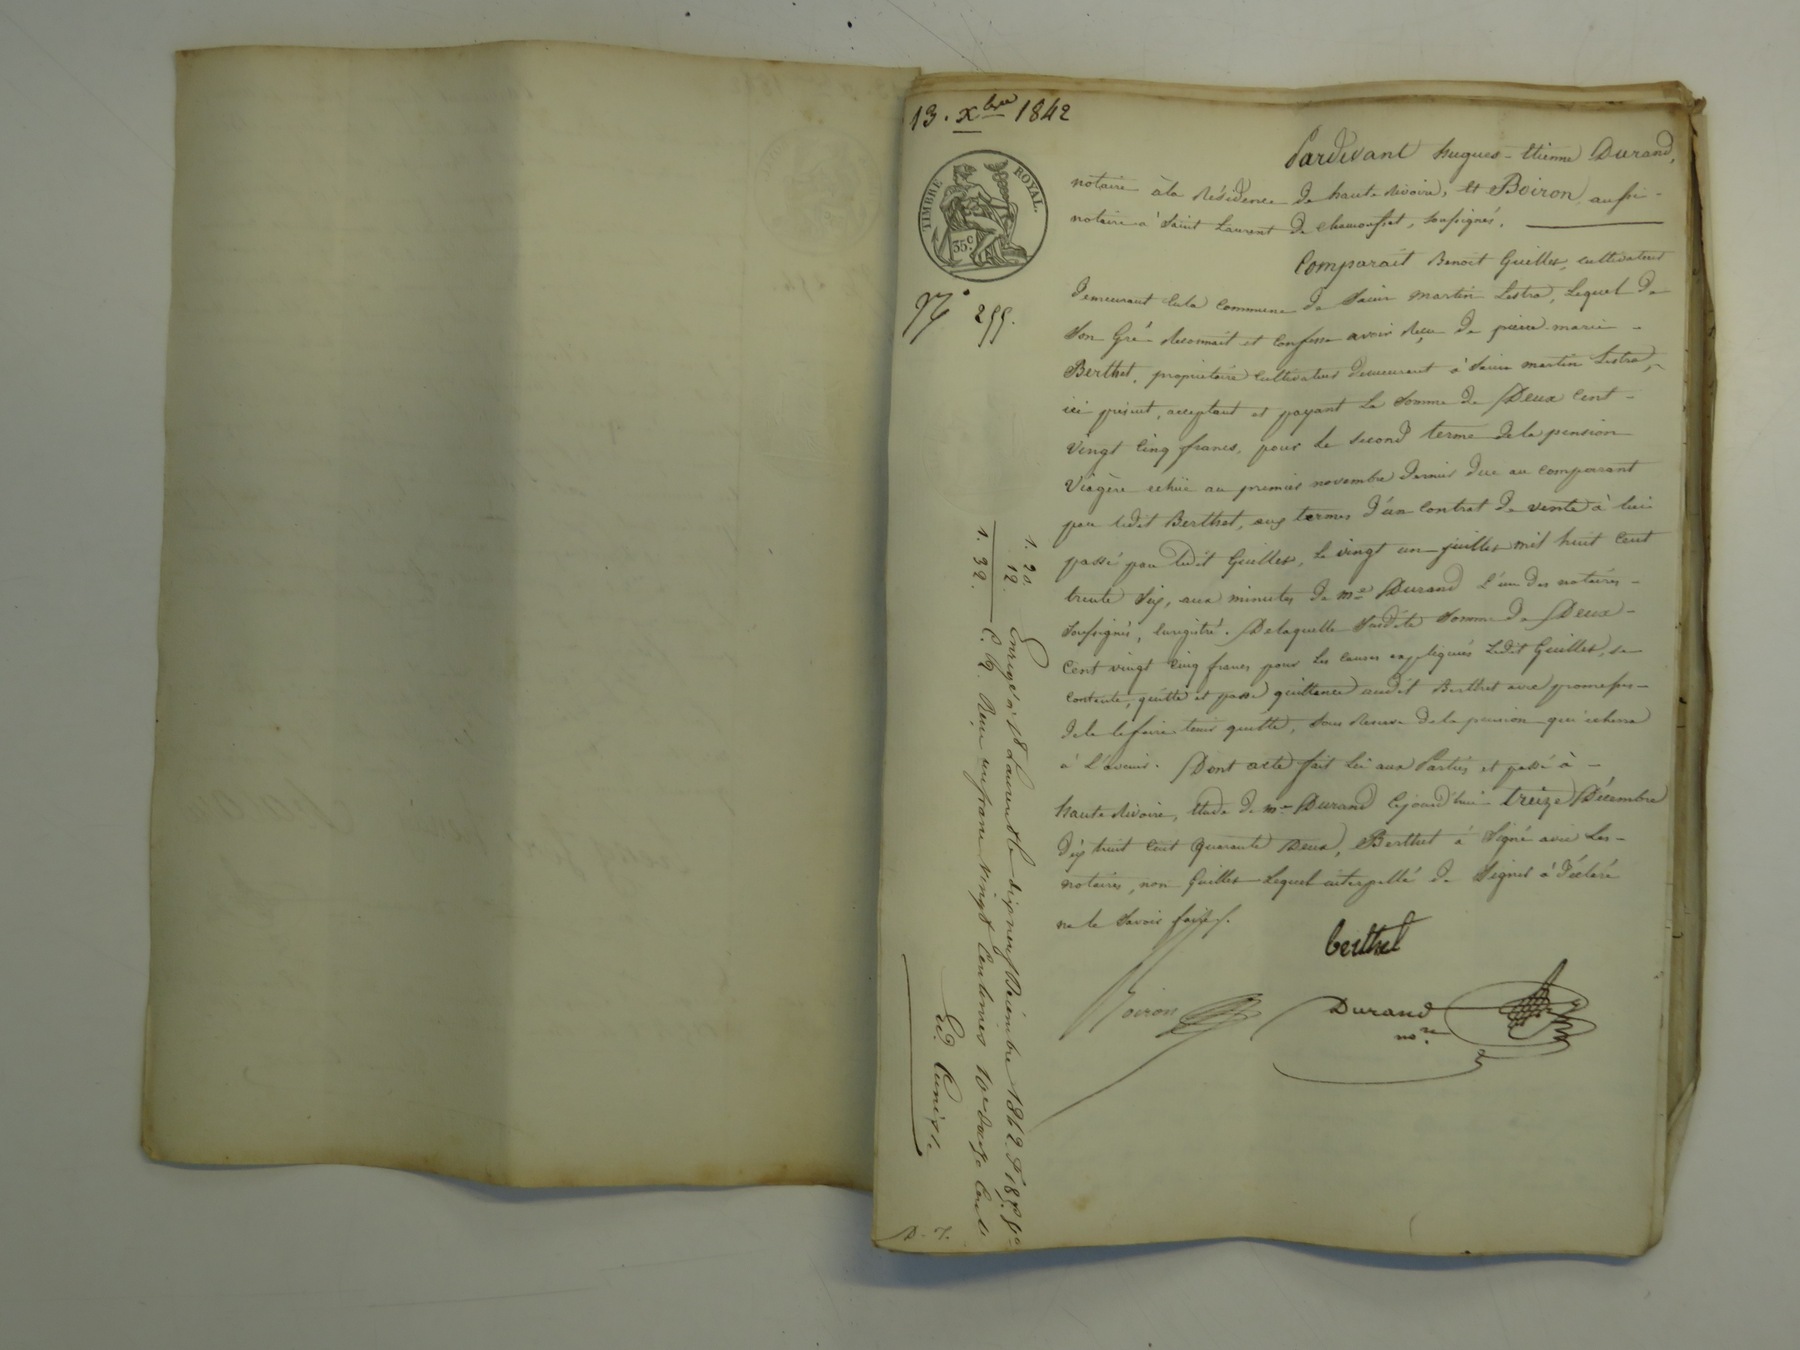 13. Xbre 1842
TIMBRE ROYAL.
35c
N° 299.
Pardevant hugues-Etienne Durand,
notaire à la Résidence de haute Rivoire, et Boiron, aussi
notaire à Saint Laurent de Chamousset, soussignés.
Comparait Benoit Guillet, cultivateur
demeurant en la commune de Saint martin Lestra, Lequel de
son Gré reconnait et confesse avoir reçu de pierre-marie
Berthet, propriétaire cultivateur demeurant à Saint martin Lestra,
ici présent, acceptant et payant la somme de Deux cent
vingt cinq francs, pour le second terme de la pension
viagère echue au premier novembre dernier due au comparant
par ledit Berthet, aux termes d'un contrat de vente à lui
passé par ledit Guillet, le vingt un juillet mil huit cent
trente six, aux minutes de me Durand l'un des notaires
soussignés, enregistré. De laquelle susdite somme de Deux
cent vingt cinq francs pour les causes expliquées Ledit Guillet, se
contente, quitte et passe quittance audit Berthet avec promesse
de le faire tenir quitte, sous Réserve de la pension qui echerra
à l'avenir. Dont acte fait lu aux Parties et passé à
haute Rivoire, étude de me Durand cejourd'hui treize Décembre
dix huit cent quarante Deux, Berthet à Signé avec Les
notaires, non Guillet Lequel interpellé de Signer à déclaré
ne le savoir faire.
berthet
Boiron
Durand
nore
1. 20.
12.
1. 32.
Enregé à St Laurent le dix neuf Décembre 1842 Fo 18
Reçu un franc vingt centimes 10e douze cent
D. 7.